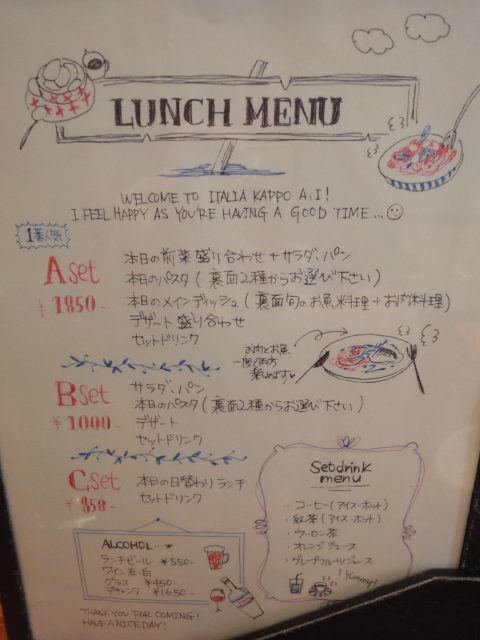 LUNCH MENU
WELCOME TO ITALIA KAPPO A.I!
I FEEL HAPPY AS YOU'RE HAVING A GOOD TIME...
1番人気
A set
¥1850-
本日の前菜盛り合わせ+サラダ、パン
本日のパスタ(裏面2種からお選び下さい)
本日のメインディッシュ(裏面旬のお魚料理+お肉料理)
デザート盛り合わせ
セットドリンク
お肉とお魚
一度に両方
楽しめます
B set
¥1000-
サラダ、パン
本日のパスタ(裏面2種からお選び下さい)
デザート
セットドリンク
C set
¥850-
本日の日替わりランチ
セットドリンク
Setdrink
menu
・コーヒー(アイス・ホット)
・紅茶(アイス・ホット)
・ウーロン茶
・オレンジジュース
・グレープフルーツジュース
Yummy!
ALCOHOL...
ランチビール ¥550-
ワイン 赤・白
グラス ¥450-
デキャンタ ¥1650-
THANK YOU FOR COMING!
HAVE A NICE DAY!